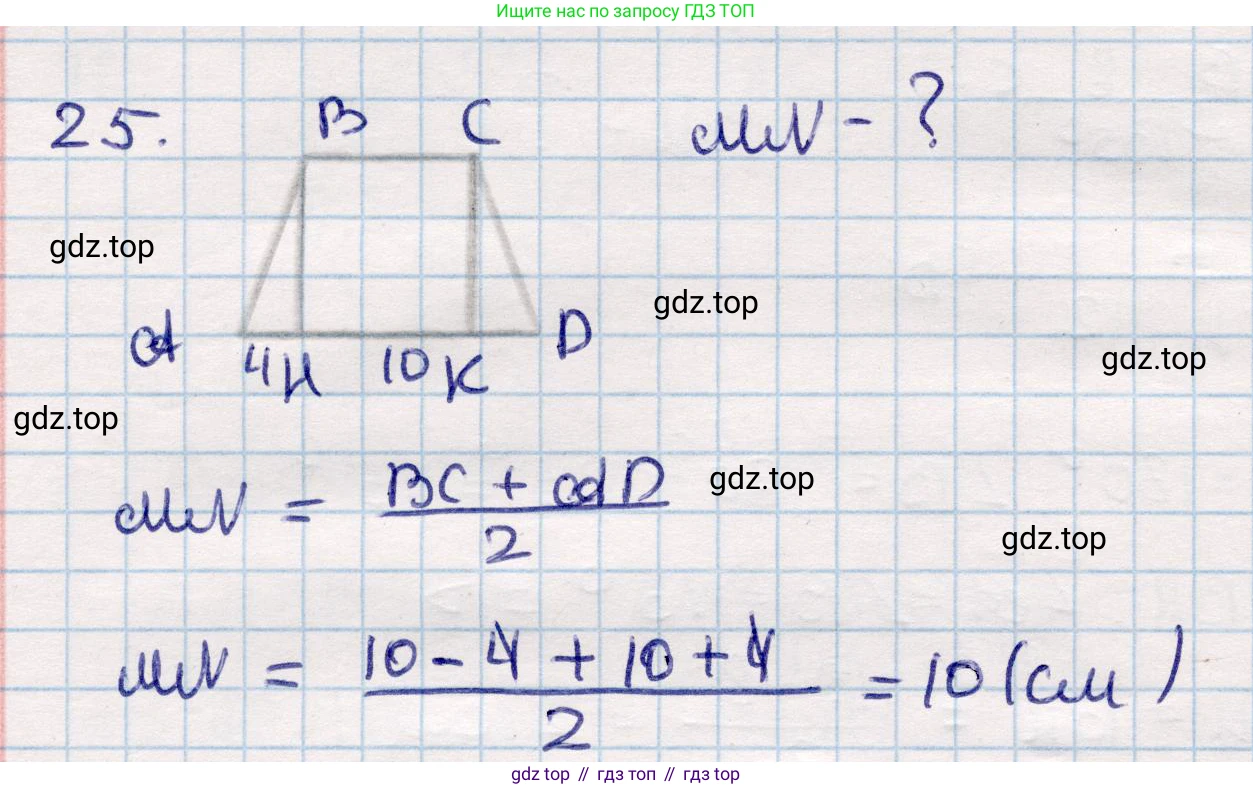 Ищите нас по запросу ГДЗ ТОП
25. B C MN - ?
gdz.top
gdz.top
A 4 H 10 K D
gdz.top
gdz.top
MN = \frac{BC + AD}{2}
gdz.top
gdz.top
MN = \frac{10 - 4 + 10 + 4}{2} = 10 (см)
gdz.top // гдз топ // гдз top